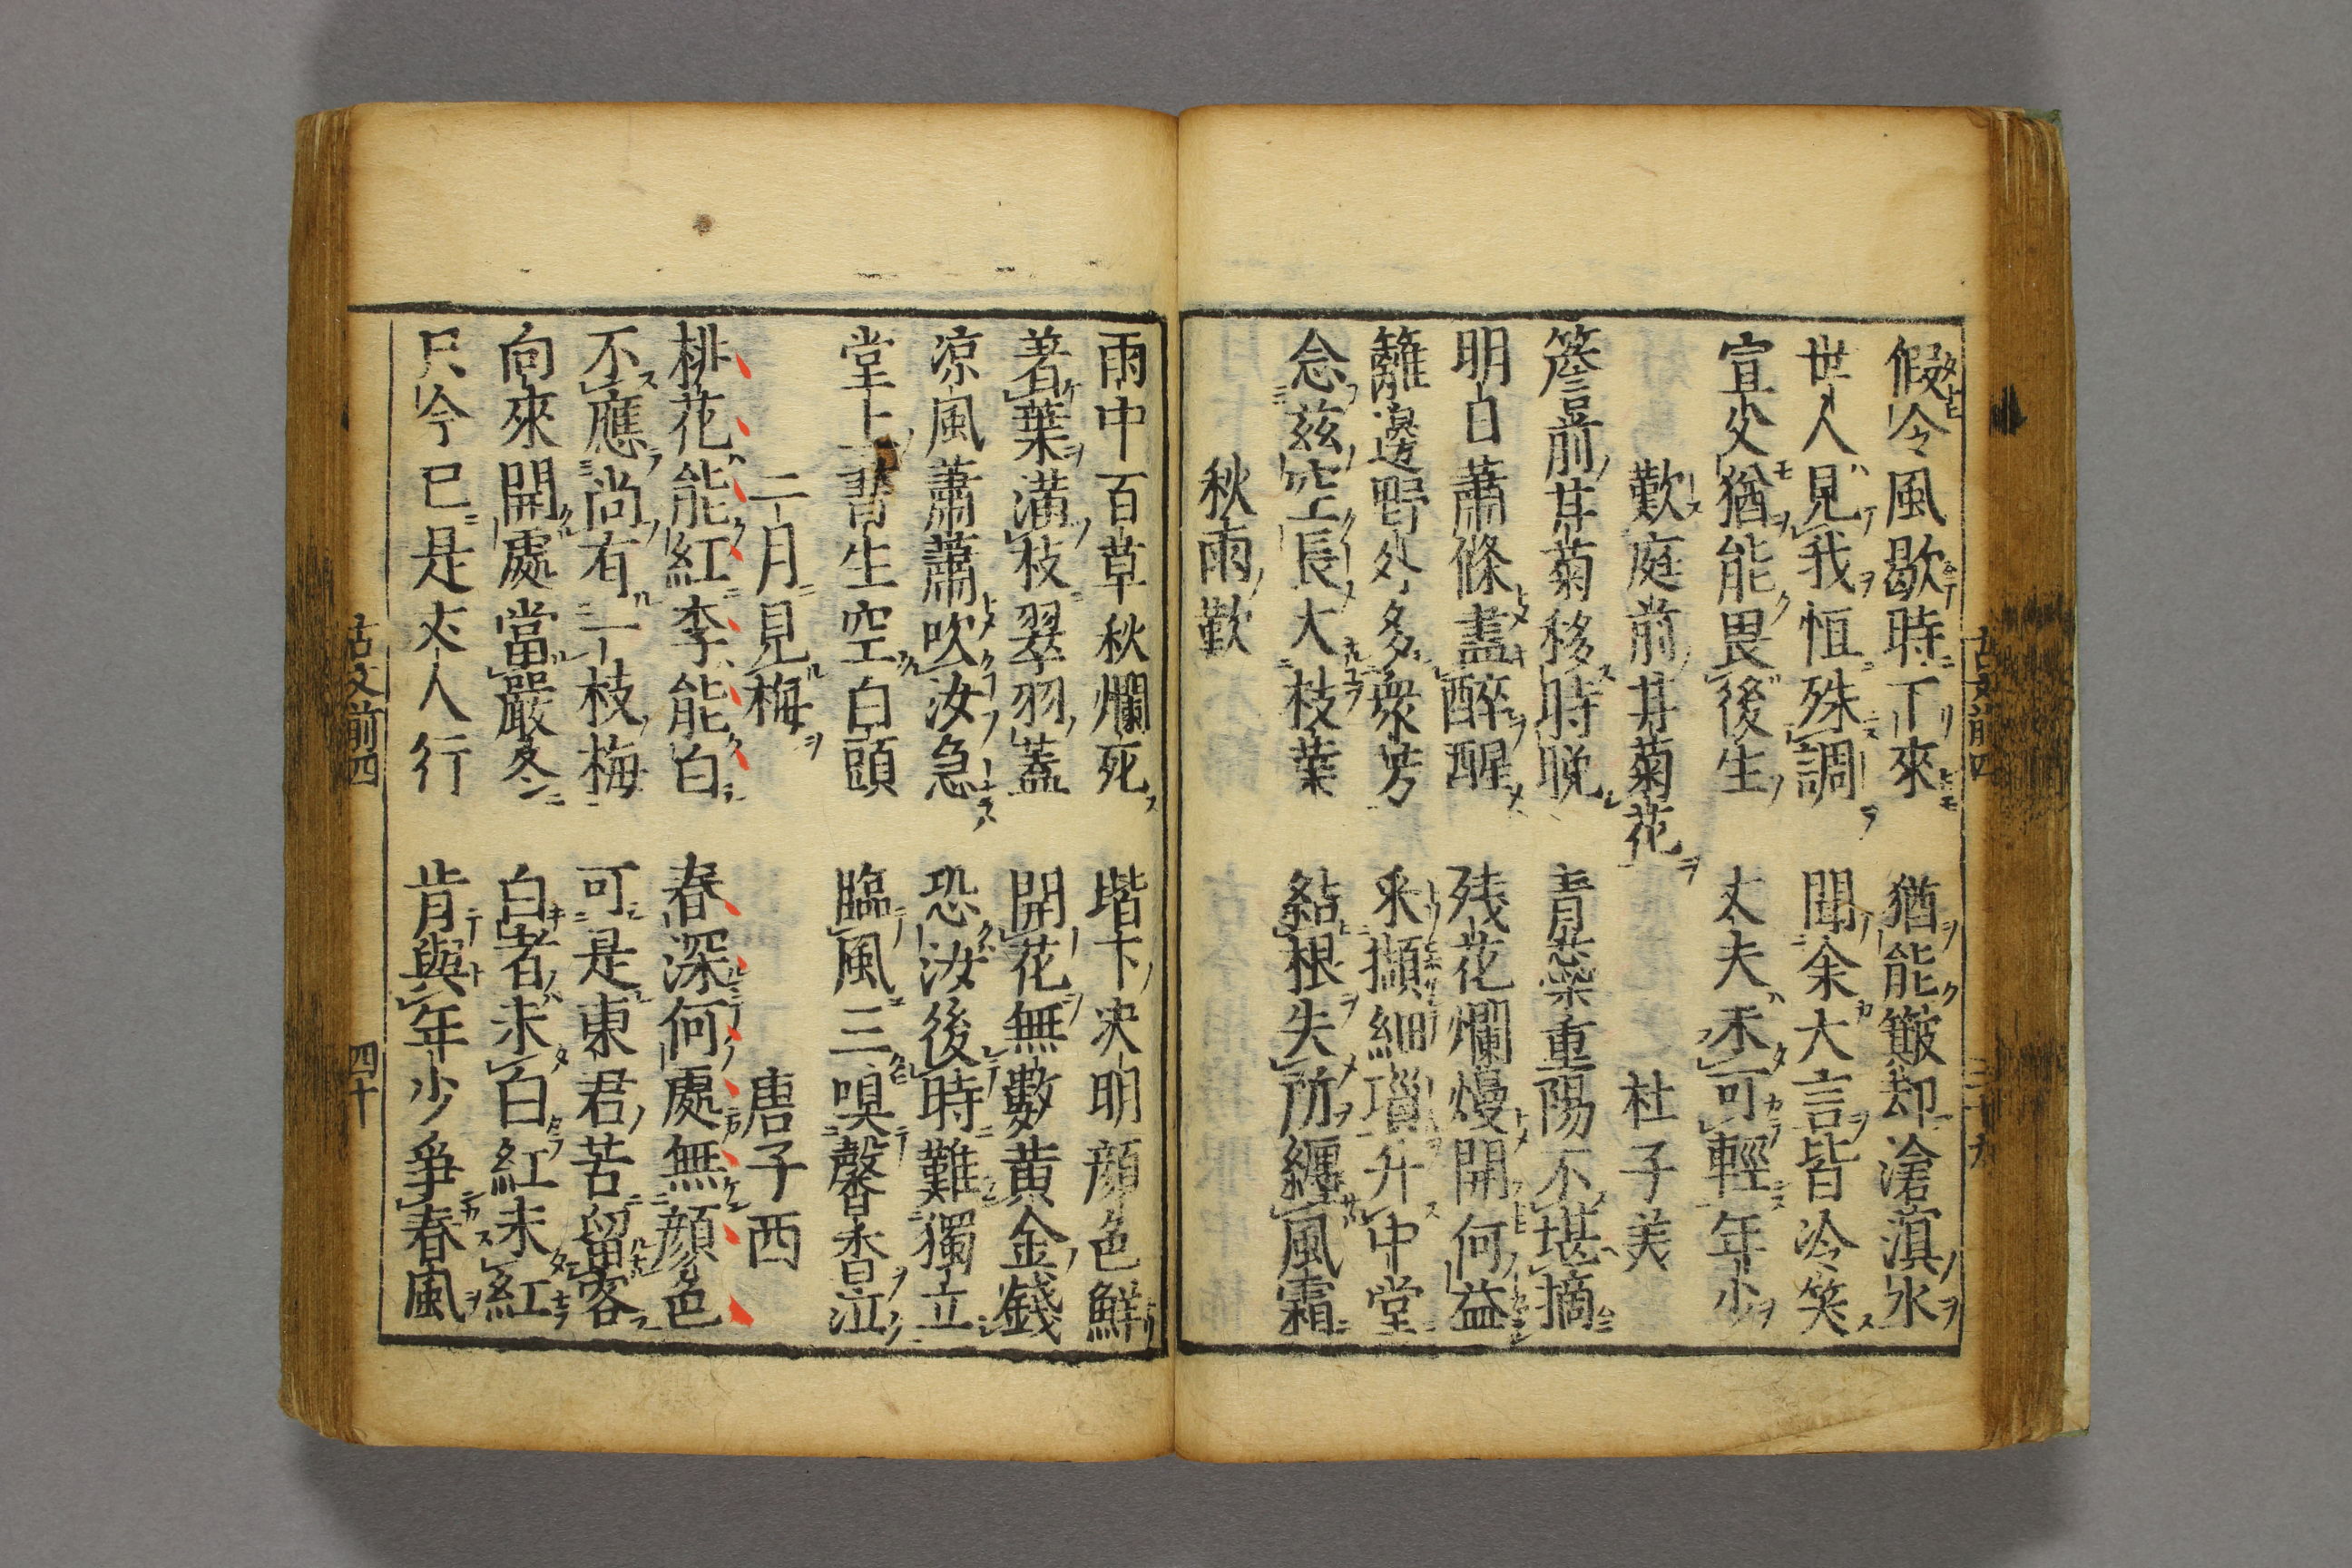 假令風歇時下來 猶能簸却滄溟水
世人見我恒殊調 聞余大言皆冷笑
宣父猶能畏後生 丈夫未可輕年少
歎庭前甘菊花 杜子美
簷前甘菊移時晩 青蘂重陽不堪摘
明日蕭條盡醉醒 残花爛熳開何益
籬邊野外多衆芳 采擷細瑣升中堂
念茲空長大枝葉 結根失所纏風霜
秋雨歎
古文前四 三十九
雨中百草秋爛死 堦下决明顔色鮮
著葉満枝翠羽蓋 開花無數黄金錢
凉風蕭蕭吹汝急 恐汝後時難獨立
堂上書生空白頭 臨風三嗅馨香泣
二月見梅 唐子西
桃花能紅李能白 春深何處無顔色
不應尚有一枝梅 可是東君苦留客
向來開處當嚴冬 白者未白紅未紅
只今已是丈人行 肯與年少爭春風
古文前四 四十